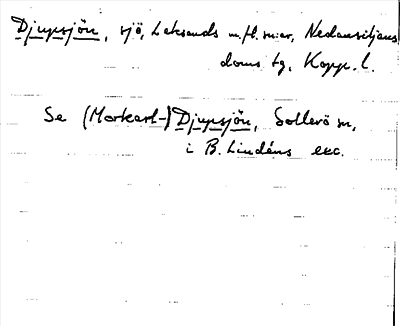 Djupsjön, sjö, Leksands m.fl. snar, Nedansiljans
doms tg, Kopp. l.
Se (Morkarl-) Djupsjön, Sollerö sn,
i B. Lindéns exc.